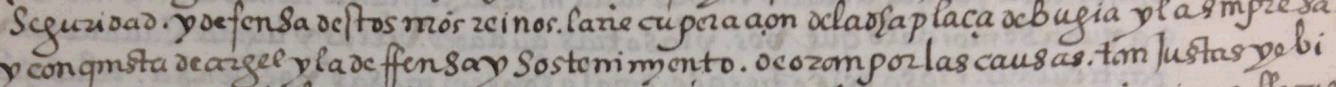 seguridad. y defensa destos mos reinos. la rrecuperaçion de la dha plaça de bugia y la empresa
y conquista de argel y la deffensa y sostenimyento. de oran por las causas. tan justas y obi